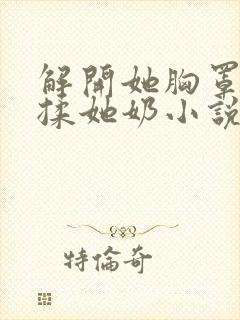 解開她胸罩
揉她奶小說
特倫奇